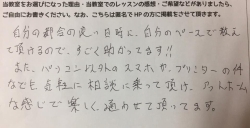 当教室をお選びになった理由・当教室でのレッスンの感想・ご希望などがありましたら、
ご自由にお書きください。なお、こちらは匿名でHPの方に掲載をさせて頂きます。
自分の都合の良い日時に、自分のペースで教え
て頂けるので、すごく助かってます!!
また、パソコン以外のスマホや、プリンターの件
なども気軽に相談に乗って頂け、アットホーム
な感じで楽しく、通わせて頂いてます。